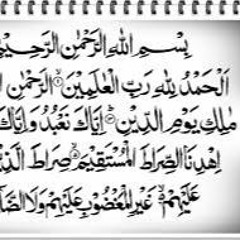 بِسْمِ اللهِ الرَّحْمٰنِ الرَّحِيْمِ
اَلْحَمْدُ لِلّٰهِ رَبِّ الْعٰلَمِيْنَ ۙ الرَّحْمٰنِ
مٰلِكِ يَوْمِ الدِّيْنِ ۗ اِيَّاكَ نَعْبُدُ وَاِيَّاكَ
اِهْدِنَا الصِّرَاطَ الْمُسْتَقِيْمَ ۙ صِرَاطَ
عَلَيْهِمْ ۙ غَيْرِ الْمَغْضُوْبِ عَلَيْهِمْ وَلَا